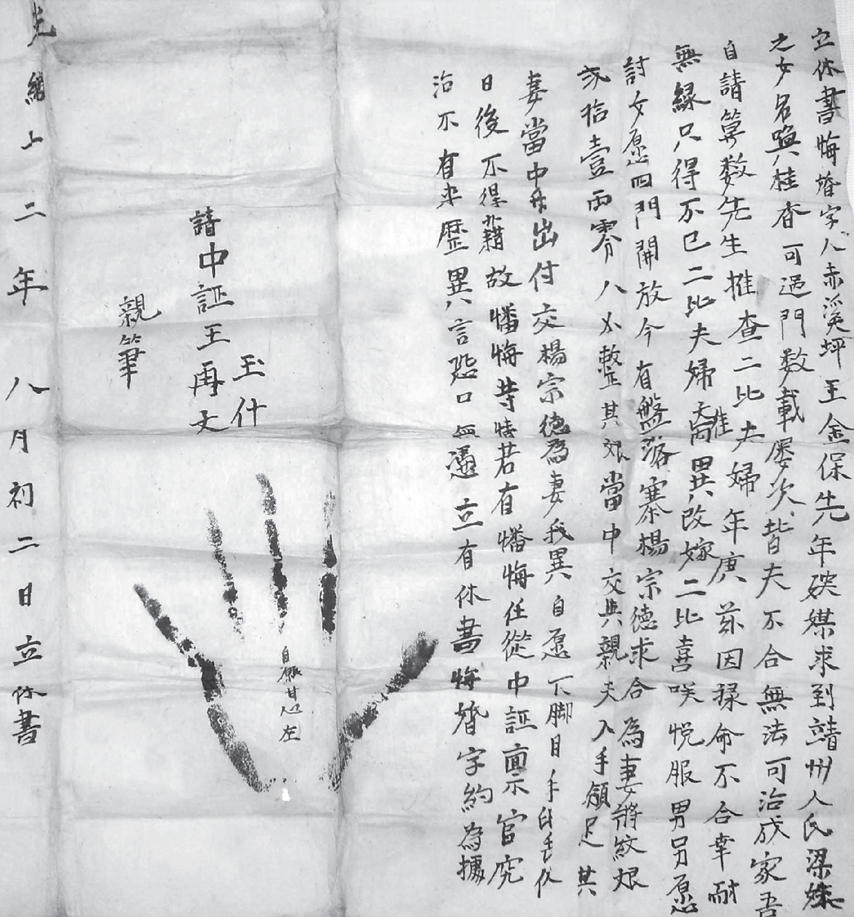 立休書悔婚字人赤溪坪王金保先年央媒求到靖州人氏梁姝
之女名喚桂香可過門数載屡次皆夫不合無法可治成家吾
自請筭数先生推查二比夫婦年庚茲因揉命不合幸耐
無緣只得不已二比夫婦商異改嫁二比喜咲悦服男另愿
討女愿四門開放今有盤落寨楊宗德求合為妻將紋艮
貳拾壹両零八分整其艮當中交與親夫入手領足其
妻當中舟出付交楊宗德為妻我異自愿下脚目手
日後不得藉故憣悔等情若有憣悔任從中証禀官究
治不有来歷異言恐口無憑立有休書悔婚字約為據
請中証王再文
玉什
親筆
自愿甘心左
光緒上二年八月初二日立休書